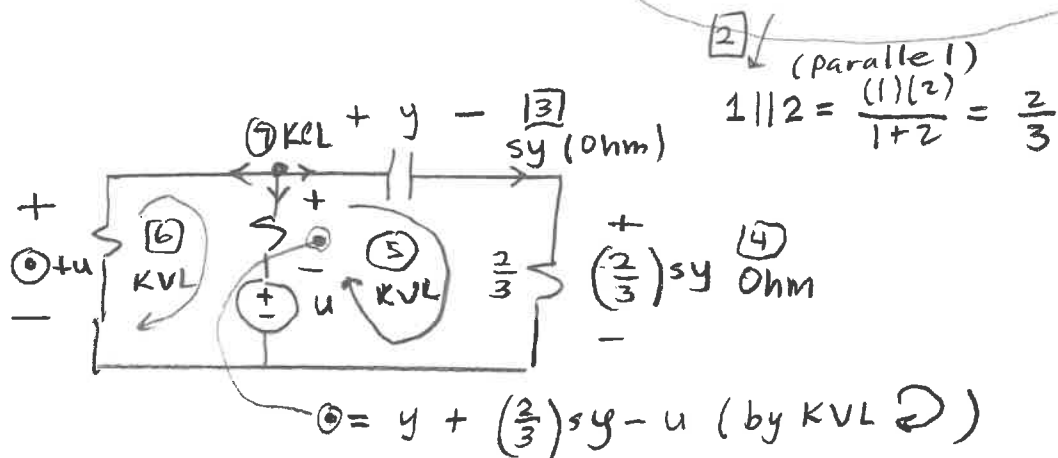 2
(parallel)
1||2 = (1)(2)/1+2 = 2/3
⑦ KCL + y - 3
sy (Ohm)
+ 6 + 5 2/3 + 4
⊙+u KVL - KVL (2/3)sy Ohm
- + - u -
⊙ = y + (2/3)sy - u (by KVL ↻)